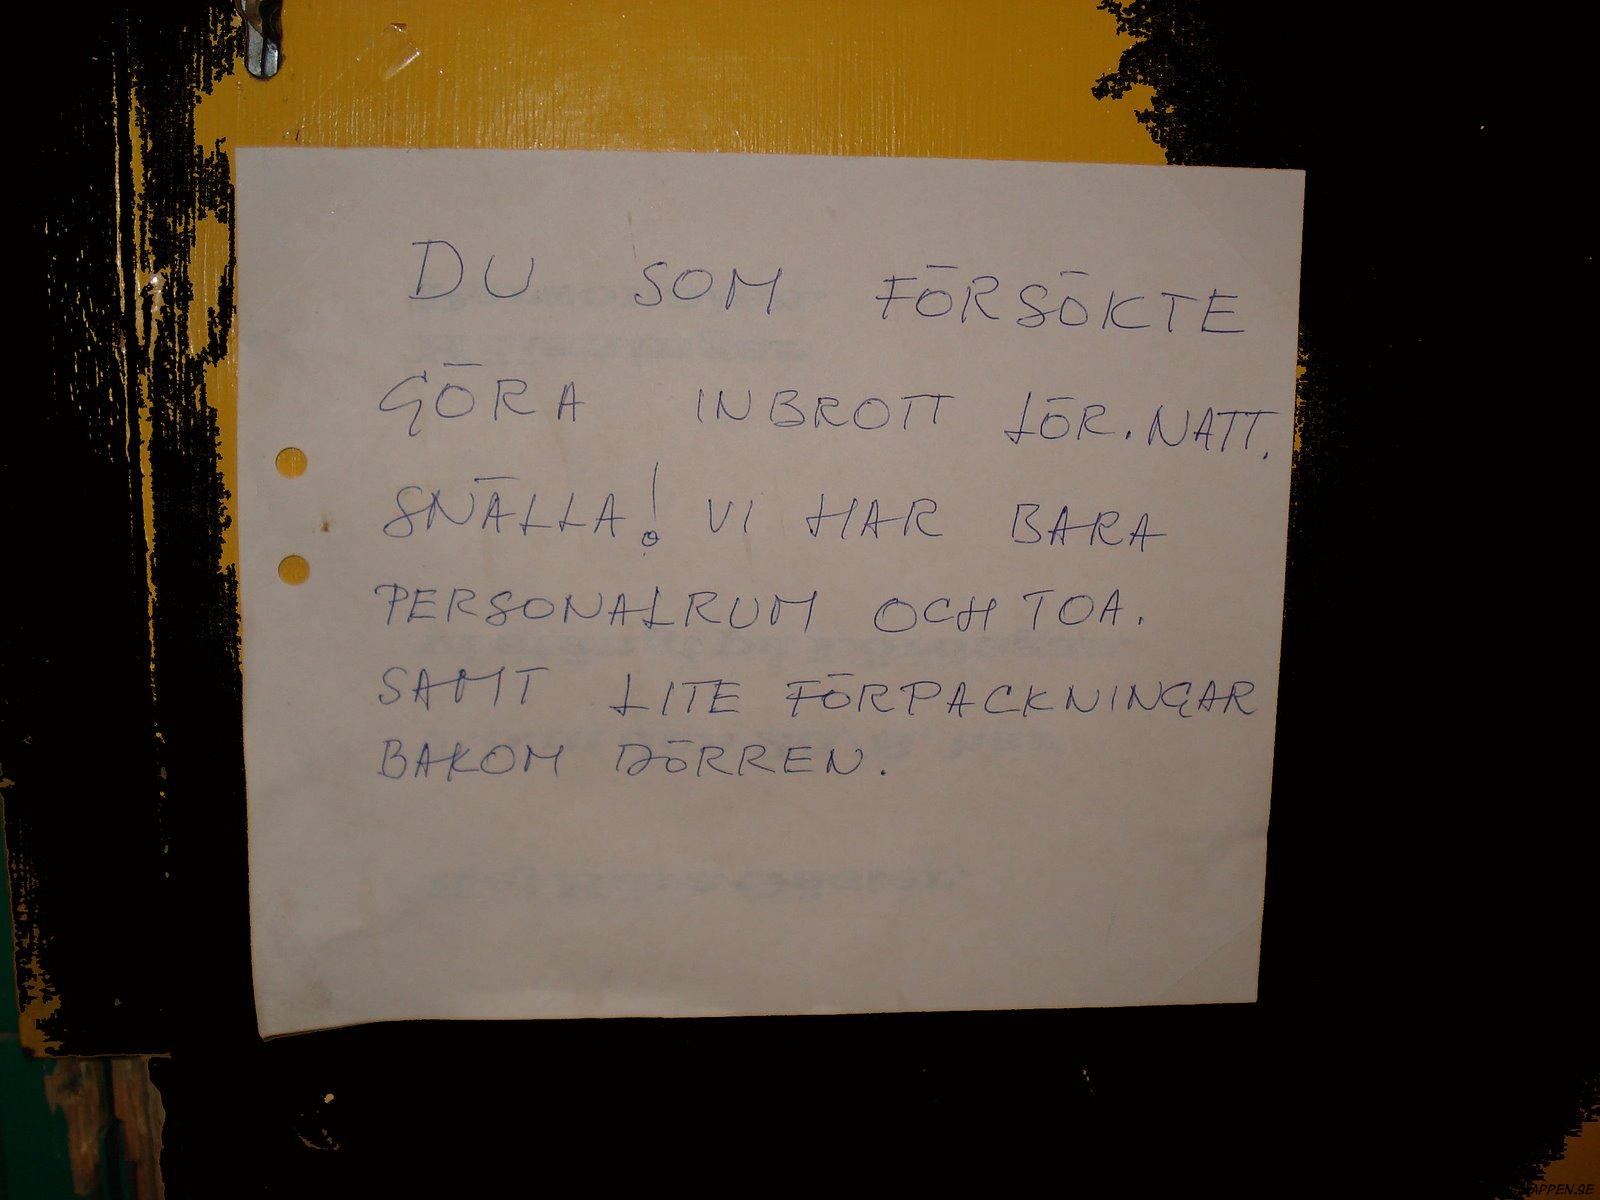 DU SOM FÖRSÖKTE
GÖRA INBROTT LÖR. NATT.
SNÄLLA! VI HAR BARA
PERSONALRUM OCH TOA.
SAMT LITE FÖRPACKNINGAR
BAKOM DÖRREN.